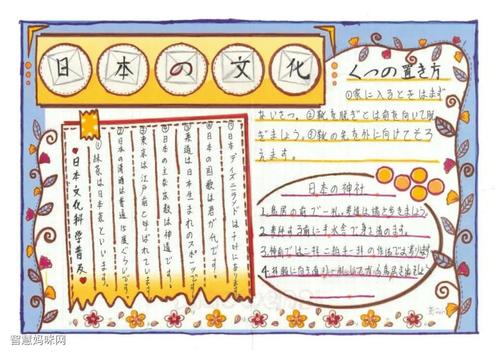 日本の文化
くつの置き方
①家に入るときはまず
あいさつ。②靴を脱ぎとは前を向いて脱
ぎましょう。③靴の先を外に向けてそろ
えます。
日本の神社
1.鳥居の前で一礼。参道は端を歩きましょう
2.参拝する前に手水舎で身を清めます。
3.神前では二拝二拍手一拝の作法でお参ります
⑦日本ディズニーランドは千叶にあります。
⑥日本の国歌は君が代です。
⑤柔道は日本生まれのスポーツです。
④日本の主な宗教は神道です。
③東京は江戸前と呼ばれています。
②日本の消費は普通15度ぐらいです。
①抹茶は日本茶といいます。
♥日本文化科学普及♥
智慧妈咪网